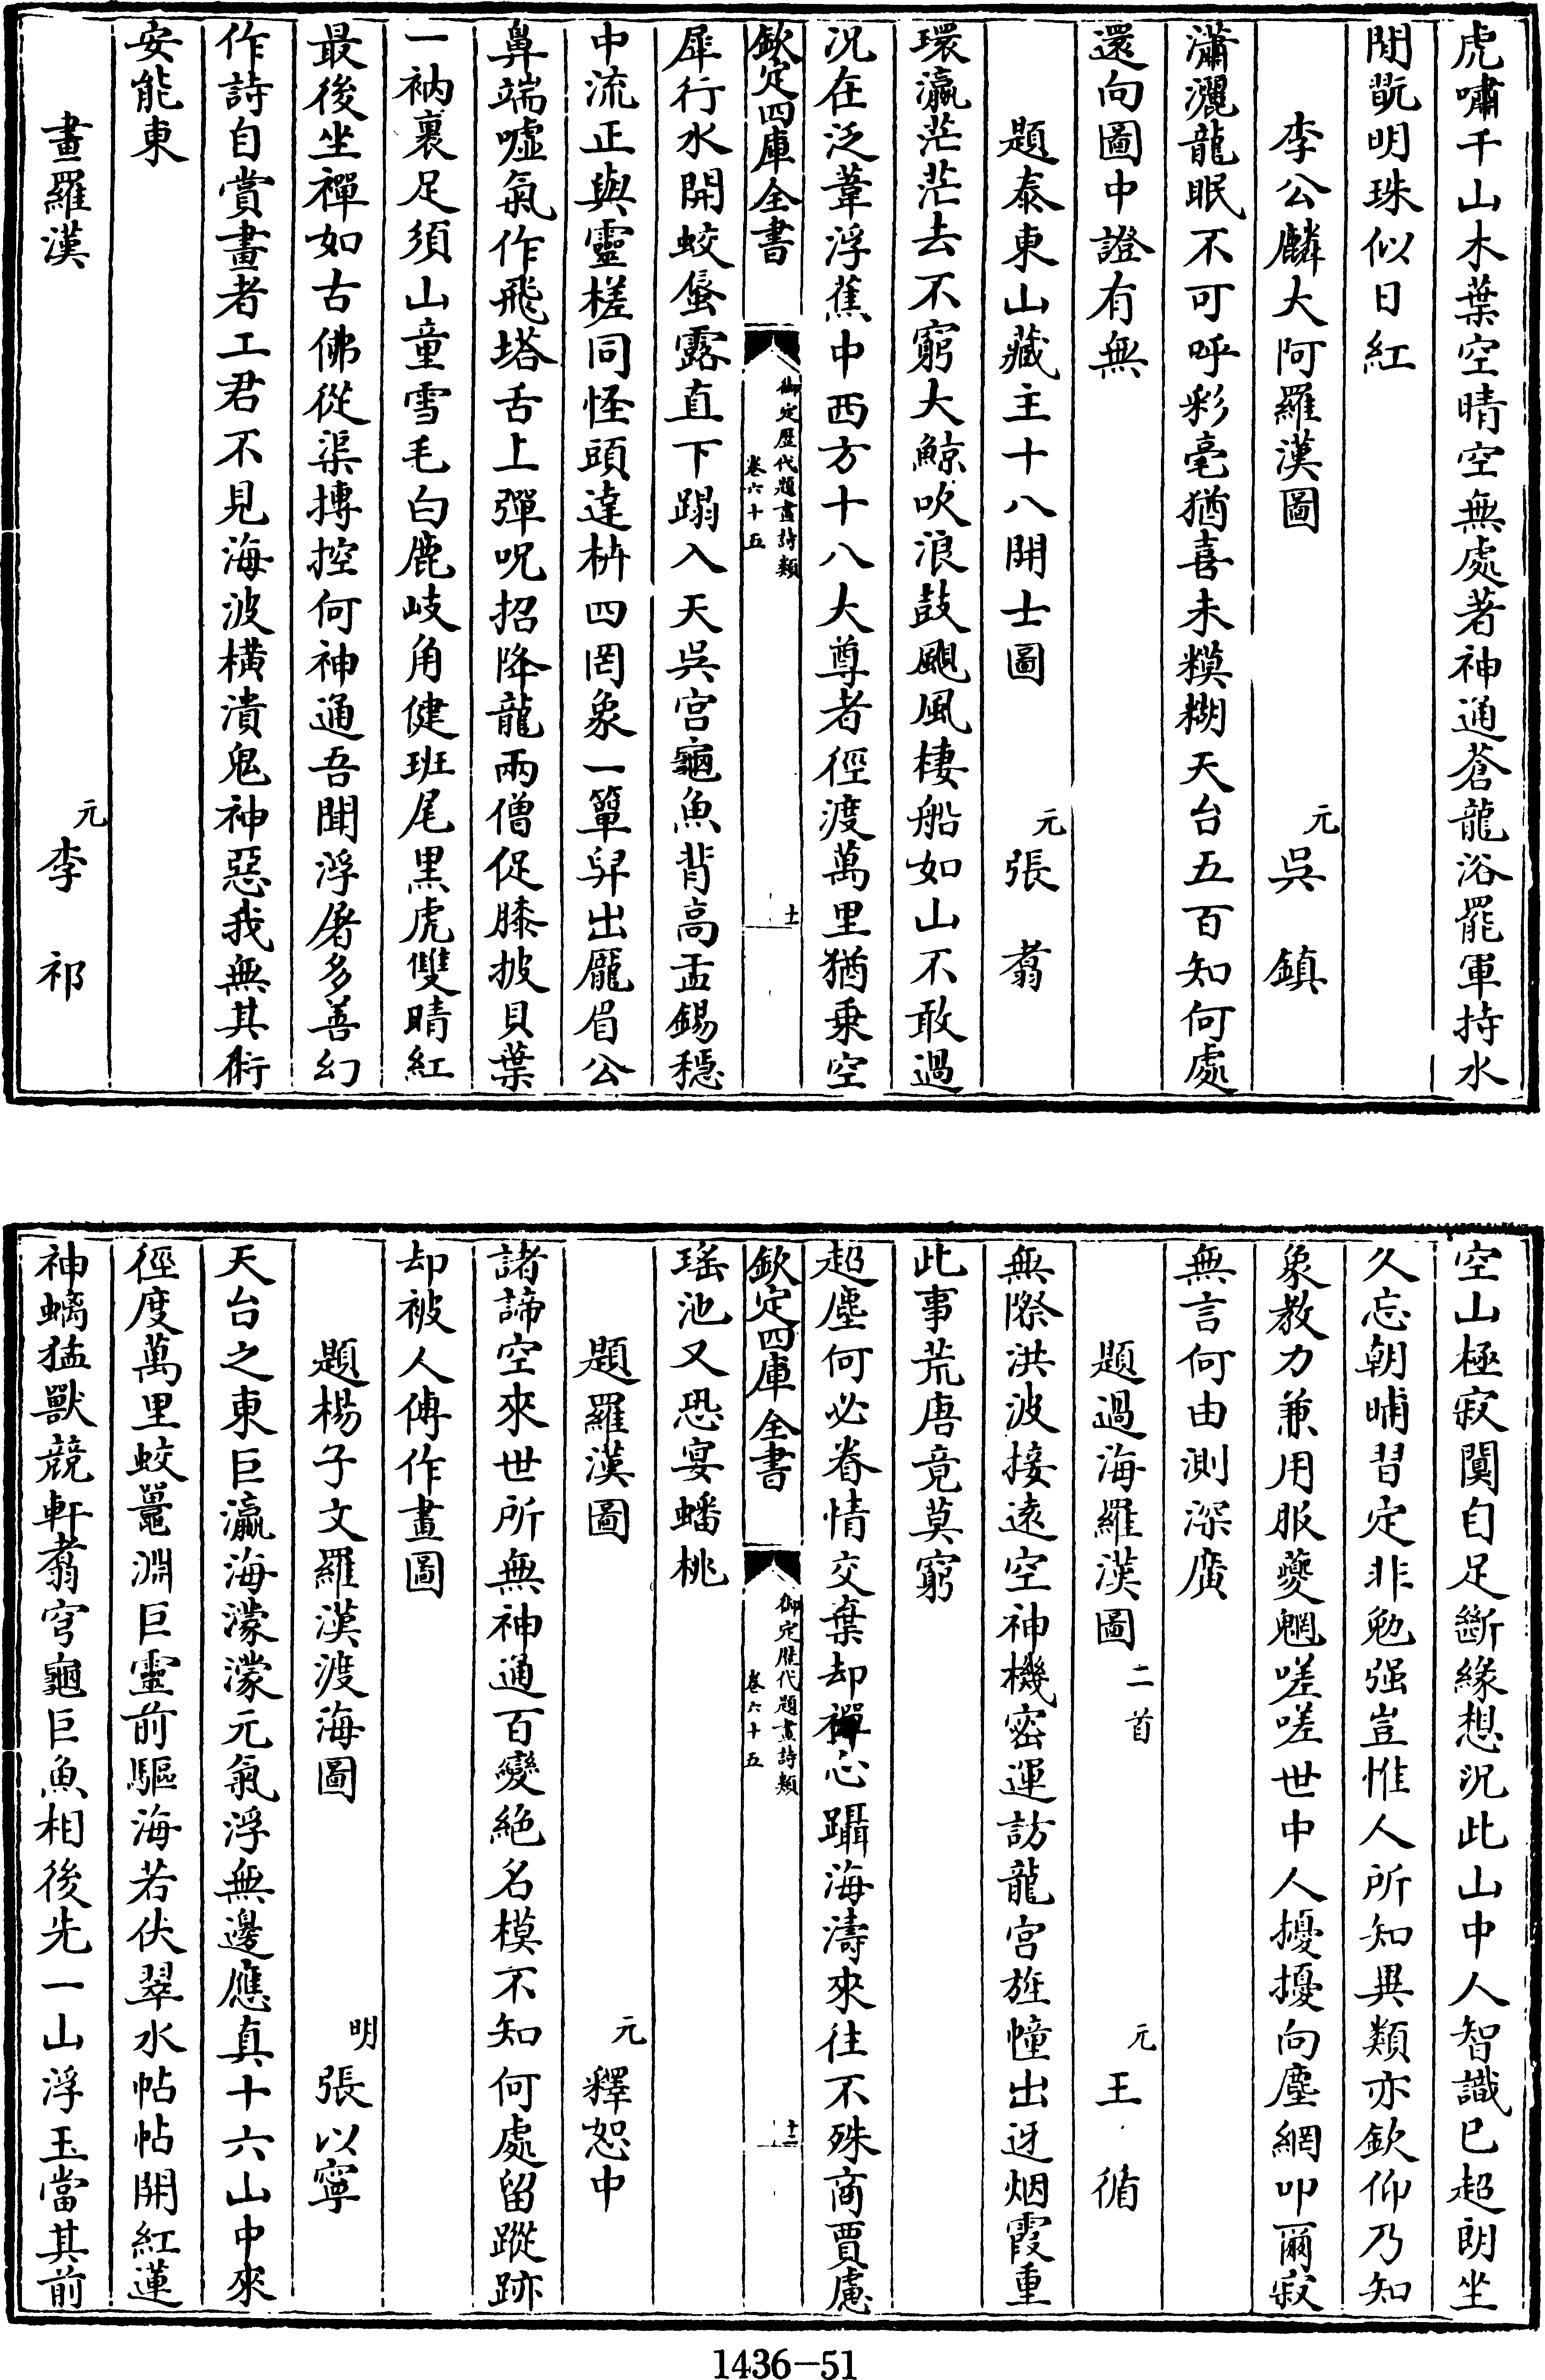 虎嘯千山木葉空晴空無處著神通蒼龍浴罷軍持水
閒翫明珠似日紅
李公麟大阿羅漢圖 元 吳鎮
瀟灑龍眠不可呼彩毫猶喜未糢糊天台五百知何處
還向圖中證有無
題泰東山藏主十八開士圖 元 張翥
環瀛茫茫去不窮大鯨吹浪鼓颶風棲船如山不敢過
况在泛葦浮蕉中西方十八大尊者徑渡萬里猶乗空
欽定四庫全書 御定歷代題畫詩類 卷六十五 十一
犀行水開蛟蜃露直下蹋入天吳宫龜魚背高盂錫穩
中流正與靈槎同怪頭達枿四罔象一簞舁出龎眉公
鼻端嘘氣作飛塔舌上彈呪招降龍兩僧促膝披貝葉
一衲裹足須山童雪毛白鹿岐角健班尾黒虎雙睛紅
最後坐禪如古佛從渠摶控何神通吾聞浮屠多善幻
作詩自賞畫者工君不見海波横潰鬼神惡我無其術
安能東
畫羅漢 元 李祁
空山極寂闃自足斷緣想况此山中人智識已超朗坐
久忘朝晡習定非勉强豈惟人所知異類亦欽仰乃知
象教力兼用服夔魍嗟嗟世中人擾擾向塵網叩爾寂
無言何由測深廣
題過海羅漢圖 二首 元 王循
無際洪波接遠空神機密運訪龍宫旌幢出迓烟霞重
此事荒唐竟莫窮
超塵何必眷情交棄却禪心躡海濤來往不殊商賈慮
欽定四庫全書 御定歷代題畫詩類 卷六十五 十二
瑶池又恐宴蟠桃
題羅漢圖 元 釋恕中
諸諦空來世所無神通百變絶名模不知何處留蹤跡
却被人傳作畫圖
題楊子文羅漢渡海圖 明 張以寧
天台之東巨瀛海濛濛元氣浮無邊應真十六山中來
徑度萬里蛟鼉淵巨靈前驅海若伏翠水帖帖開紅蓮
神螭猛獸競軒翥穹龜巨魚相後先一山浮玉當其前
1436-51